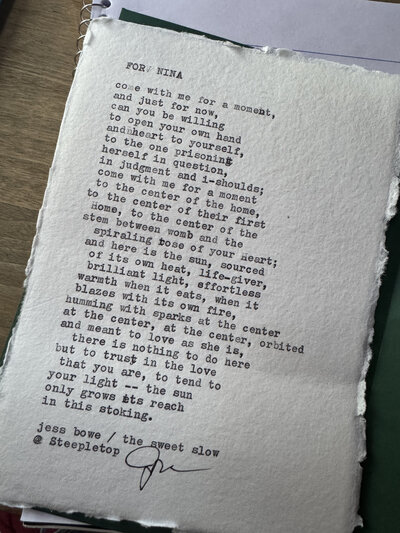 FOR NINA
come with me for a moment,
and just for now,
can you be willing
to open your own hand
and heart to yourself,
to the one prisoning
herself in question,
in judgment and i-shoulds;
come with me for a moment
to the center of the home,
to the center of their first
Home, to the center of the
stem between womb and the
spiraling rose of your Heart;
and here is the sun, sourced
of its own heat, life-giver,
brilliant light, effortless
warmth when it eats, when it
blazes with its own fire,
humming with sparks at the center
at the center, at the center, orbited
and meant to love as she is,
there is nothing to do here
but to trust in the love
that you are, to tend to
your light -- the sun
only grows its reach
in this stoking.
jess bowe / the sweet slow
@ Steepletop